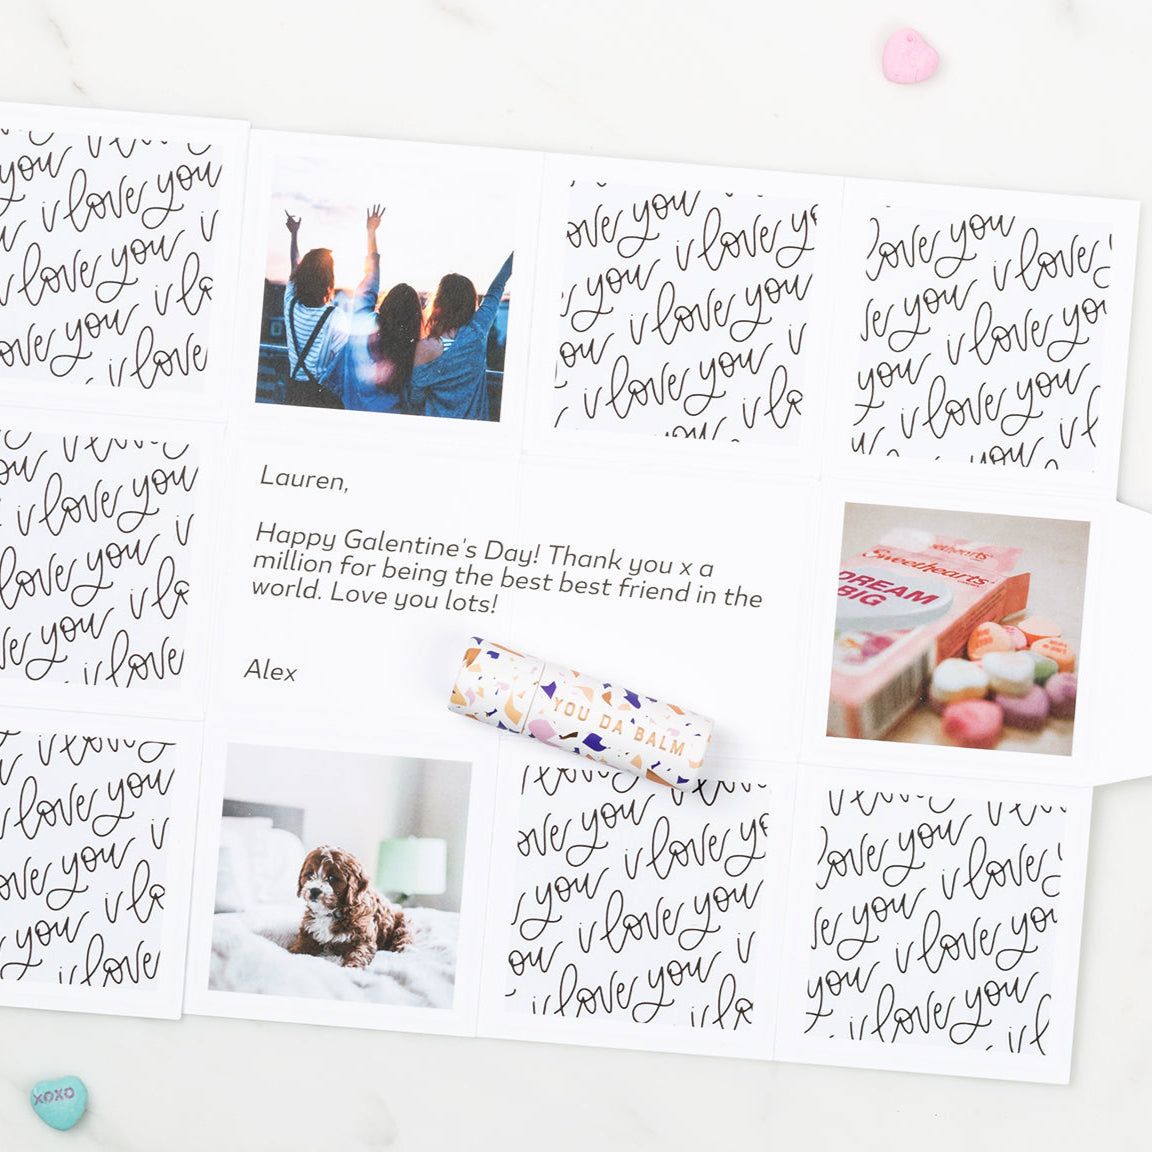 you
i love you
i love you i
love you
i love
love you
you i love
i love you
you i
i love you i
love you
i love
you i love
you i
i love you
i love you
i love you
love you i
you
i love
Lauren,
Happy Galentine's Day! Thank you x a
million for being the best best friend in the
world. Love you lots!
Alex
YOU DA BALM
Sweethearts
DREAM
BIG
i love you
love you i
love you
you
i love
love you
you i love
i love you
i
i love you
love you
i love
you
you i love
i love you
XOXO